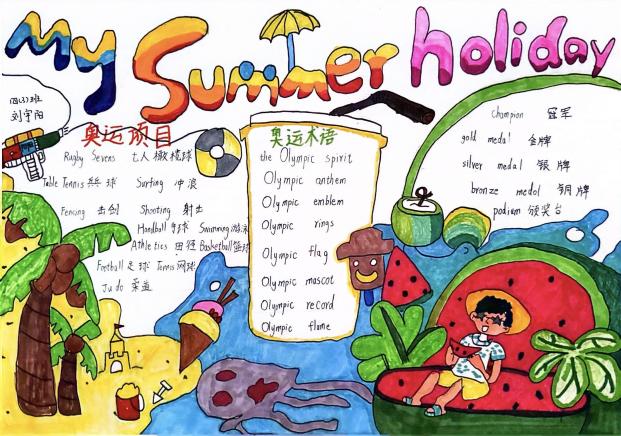 My Summer holiday
四(3)班
刘宇阳
奥运项目
Rugby Sevens 七人橄榄球
Table Tennis 乒乓球 Surfing 冲浪
Fencing 击剑 Shooting 射击
Handball 手球 Swimming 游泳
Athletics 田径 Basketball 篮球
Football 足球 Tennis 网球
Judo 柔道
奥运术语
the Olympic spirit
Olympic anthem
Olympic emblem
Olympic rings
Olympic flag
Olympic mascot
Olympic record
Olympic flame
champion 冠军
gold medal 金牌
silver medal 银牌
bronze medol 铜牌
podium 颁奖台